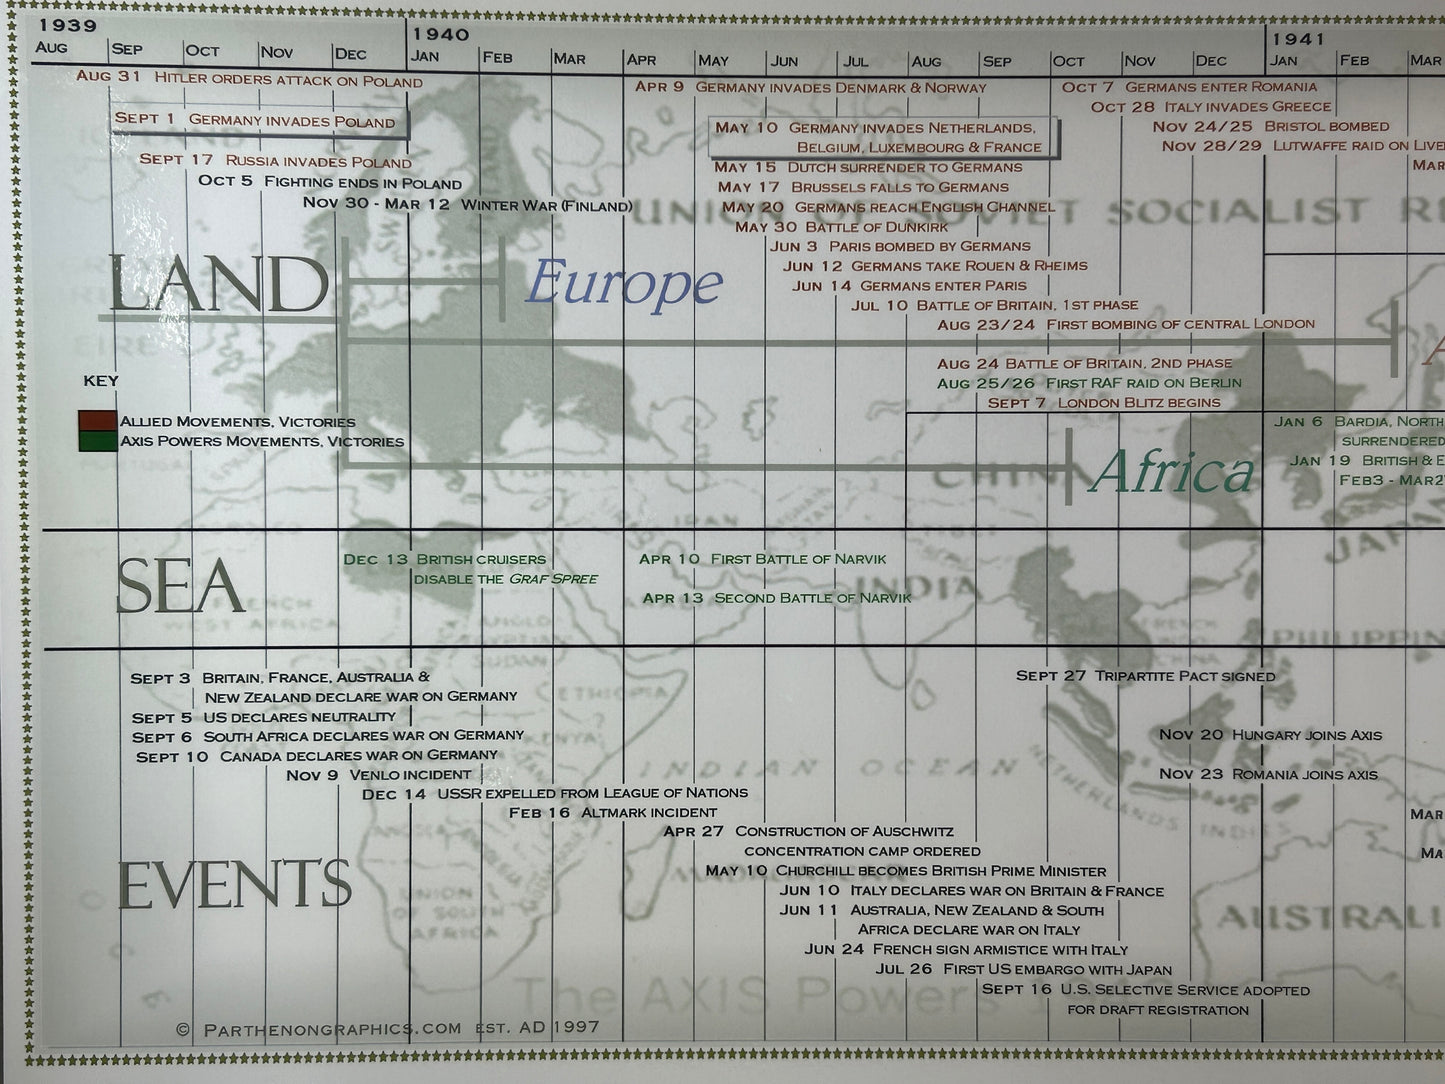 1939
1940
1941
AUG SEP OCT NOV DEC JAN FEB MAR APR MAY JUN JUL AUG SEP OCT NOV DEC JAN FEB MAR
AUG 31 HITLER ORDERS ATTACK ON POLAND
SEPT 1 GERMANY INVADES POLAND
SEPT 17 RUSSIA INVADES POLAND
OCT 5 FIGHTING ENDS IN POLAND
NOV 30 - MAR 12 WINTER WAR (FINLAND)
APR 9 GERMANY INVADES DENMARK & NORWAY
MAY 10 GERMANY INVADES NETHERLANDS,
BELGIUM, LUXEMBOURG & FRANCE
MAY 15 DUTCH SURRENDER TO GERMANS
MAY 17 BRUSSELS FALLS TO GERMANS
MAY 20 GERMANS REACH ENGLISH CHANNEL
MAY 30 BATTLE OF DUNKIRK
JUN 3 PARIS BOMBED BY GERMANS
JUN 12 GERMANS TAKE ROUEN & RHEIMS
JUN 14 GERMANS ENTER PARIS
JUL 10 BATTLE OF BRITAIN, 1ST PHASE
AUG 23/24 FIRST BOMBING OF CENTRAL LONDON
AUG 24 BATTLE OF BRITAIN, 2ND PHASE
AUG 25/26 FIRST RAF RAID ON BERLIN
SEPT 7 LONDON BLITZ BEGINS
OCT 7 GERMANS ENTER ROMANIA
OCT 28 ITALY INVADES GREECE
NOV 24/25 BRISTOL BOMBED
NOV 28/29 LUTWAFFE RAID ON LIVE
MAR
UNION OF SOVIET SOCIALIST RE
LAND
Europe
A
KEY
ALLIED MOVEMENTS, VICTORIES
AXIS POWERS MOVEMENTS, VICTORIES
Africa
JAN 6 BARDIA, NORTH
SURRENDERED
JAN 19 BRITISH & E
FEB3 - MAR2
CHINA
IRAN
JAPAN
SEA
DEC 13 BRITISH CRUISERS
DISABLE THE GRAF SPREE
APR 10 FIRST BATTLE OF NARVIK
APR 13 SECOND BATTLE OF NARVIK
INDIA
FRENCH
WEST AFRICA
ANGLO
EGYPTIAN
SUDAN
FRENCH
INDO
PHILIPPIN
ETHIOPIA
KENYA
EVENTS
SEPT 3 BRITAIN, FRANCE, AUSTRALIA &
NEW ZEALAND DECLARE WAR ON GERMANY
SEPT 5 US DECLARES NEUTRALITY
SEPT 6 SOUTH AFRICA DECLARES WAR ON GERMANY
SEPT 10 CANADA DECLARES WAR ON GERMANY
NOV 9 VENLO INCIDENT
DEC 14 USSR EXPELLED FROM LEAGUE OF NATIONS
FEB 16 ALTMARK INCIDENT
APR 27 CONSTRUCTION OF AUSCHWITZ
CONCENTRATION CAMP ORDERED
MAY 10 CHURCHILL BECOMES BRITISH PRIME MINISTER
JUN 10 ITALY DECLARES WAR ON BRITAIN & FRANCE
JUN 11 AUSTRALIA, NEW ZEALAND & SOUTH
AFRICA DECLARE WAR ON ITALY
JUN 24 FRENCH SIGN ARMISTICE WITH ITALY
JUL 26 FIRST US EMBARGO WITH JAPAN
SEPT 16 U.S. SELECTIVE SERVICE ADOPTED
FOR DRAFT REGISTRATION
SEPT 27 TRIPARTITE PACT SIGNED
NOV 20 HUNGARY JOINS AXIS
NOV 23 ROMANIA JOINS AXIS
MAR
MA
INDIAN OCEAN
NETHERLANDS INDIES
MADAGASCAR
UNION
OF SOUTH
AFRICA
AUSTRALI
The AXIS Powers
© PARTHENONGRAPHICS.COM EST. AD 1997